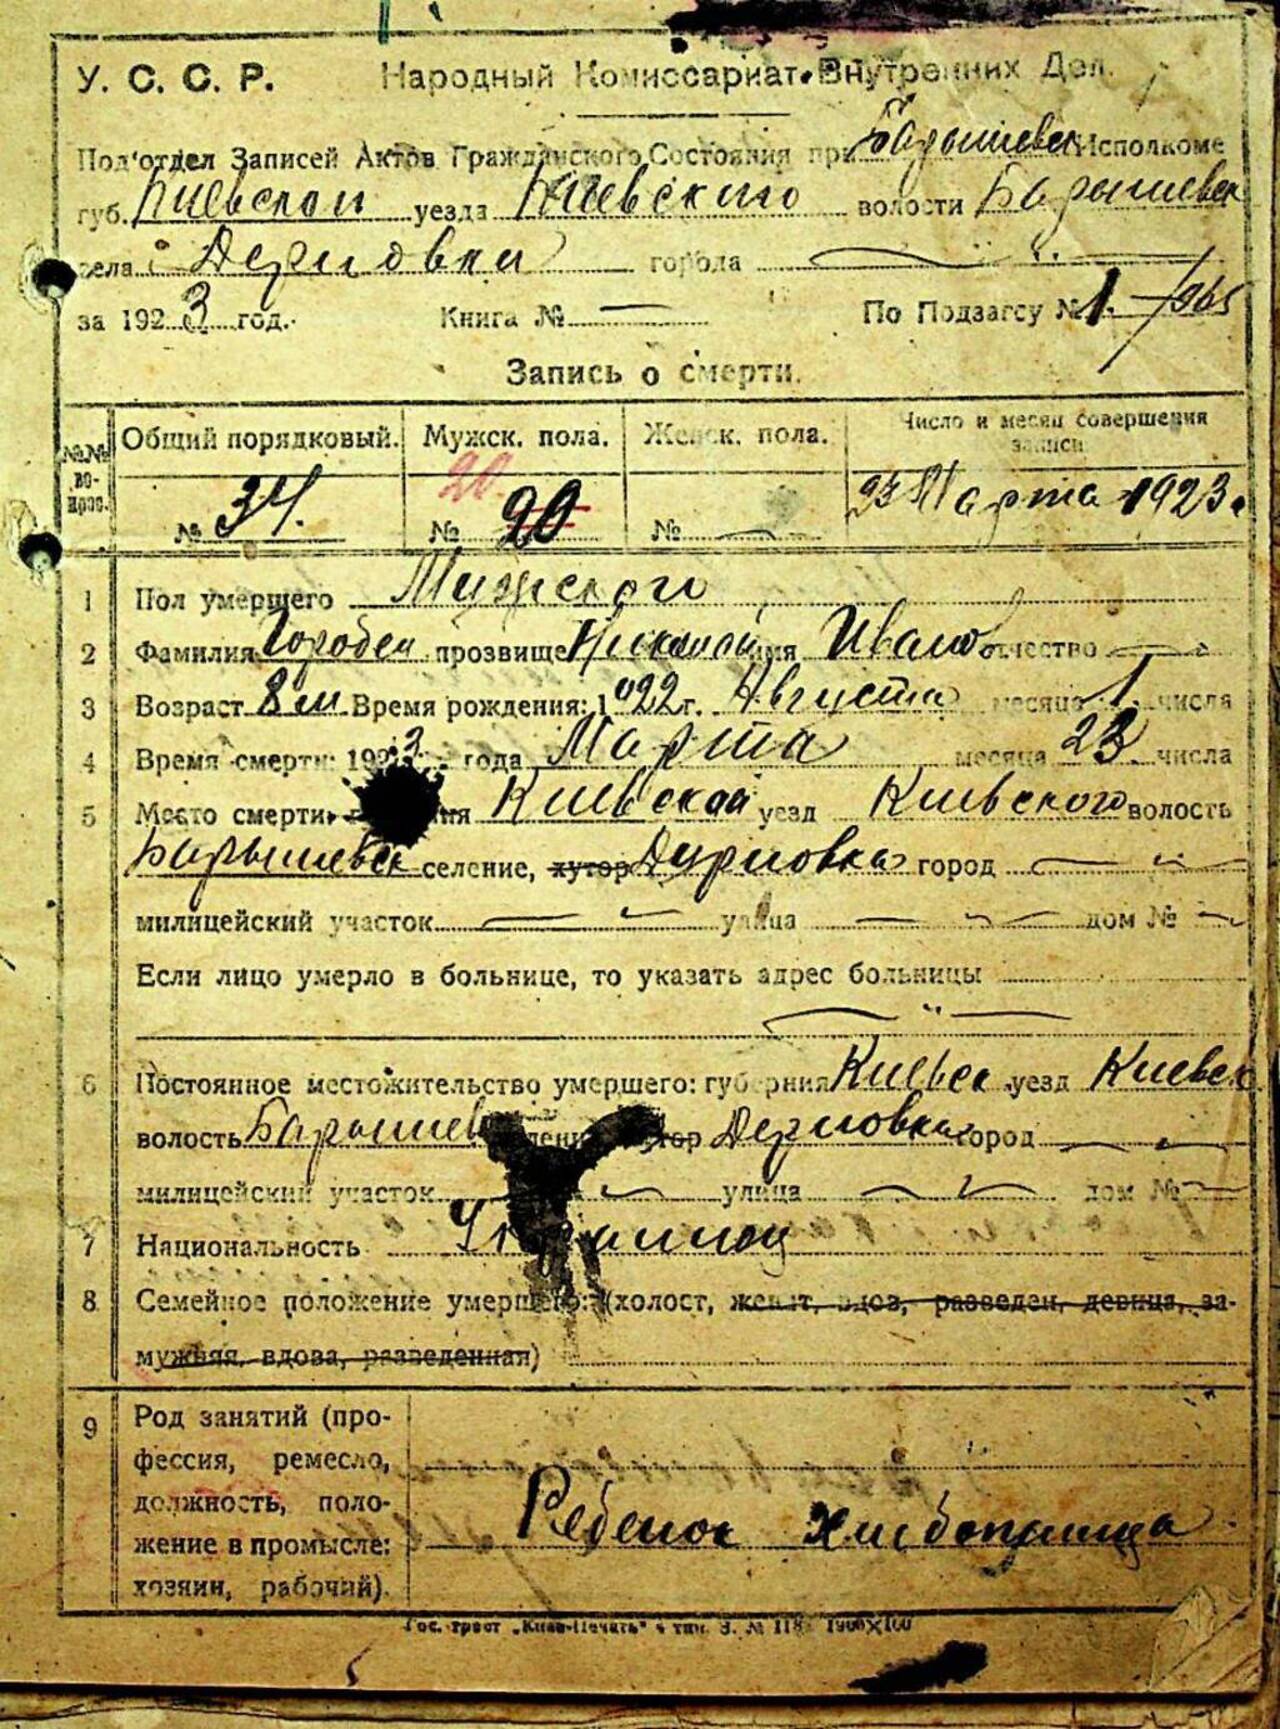 У. С. С. Р. Народный Комиссариат Внутренних Дел.
Под'отдел Записей Актов Гражданского Состояния при Барышевск Исполкоме
губ. Киевской уезда Киевского волости Барышевск
села Дерновки города
за 1923 год. Книга № — По Подзагсу № 1.
Запись о смерти.
№№ вопрос. Общий порядковый. Мужск. пола. Женск. пола. Число и месяц совершения записи
20.
№ 34. № 20 № — 23 Марта 1923 г
1 Пол умершего Мужского
2 Фамилия Городец прозвище Николай имя Иван отчество —
3 Возраст 8 м Время рождения: 1922 г. Августа месяца 1 числа
4 Время смерти: 1923 года Марта месяца 23 числа
5 Место смерти: Киевской уезд Киевского волость
Барышевск селение, хутор Дерновка город —
милицейский участок — улица — дом № —
Если лицо умерло в больнице, то указать адрес больницы
6 Постоянное местожительство умершего: губерния Киевск уезд Киевск
волость Барышев Дерновка город —
милицейский участок — улица — дом № —
7 Национальность Украинец
8 Семейное положение умершего: (холост, женат, вдов, разведен, девица, за-
мужняя, вдова, разведенная)
9 Род занятий (про-
фессия, ремесло,
должность, поло-
жение в промысле: Ребенок хлебопашца
хозяин, рабочий).
Гос. трест „Киев-Печать“ 4 тип. З. № 118 1900×100